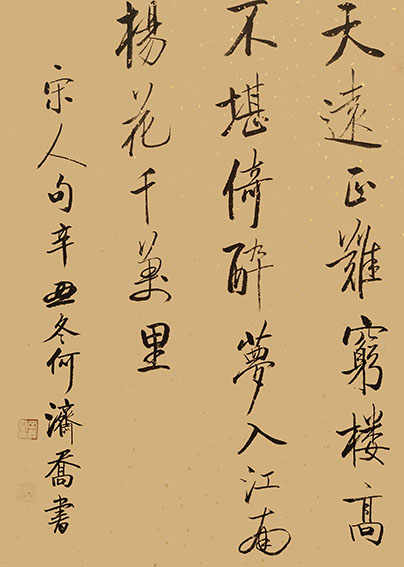 天遠正難窮楼高
不堪倚醉夢入江南
楊花千萬里
宋人句辛丑冬何濟喬書